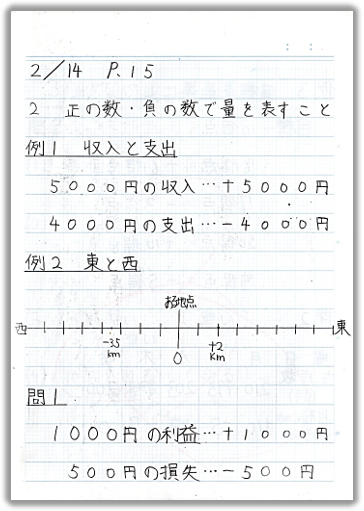 2/14 P.15
2 正の数・負の数で量を表すこと
例1 収入と支出
5000円の収入…+5000円
4000円の支出…-4000円
例2 東と西
ある地点
西 東
-3.5 km 0 +2 km
問1
1000円の利益…+1000円
500円の損失…-500円